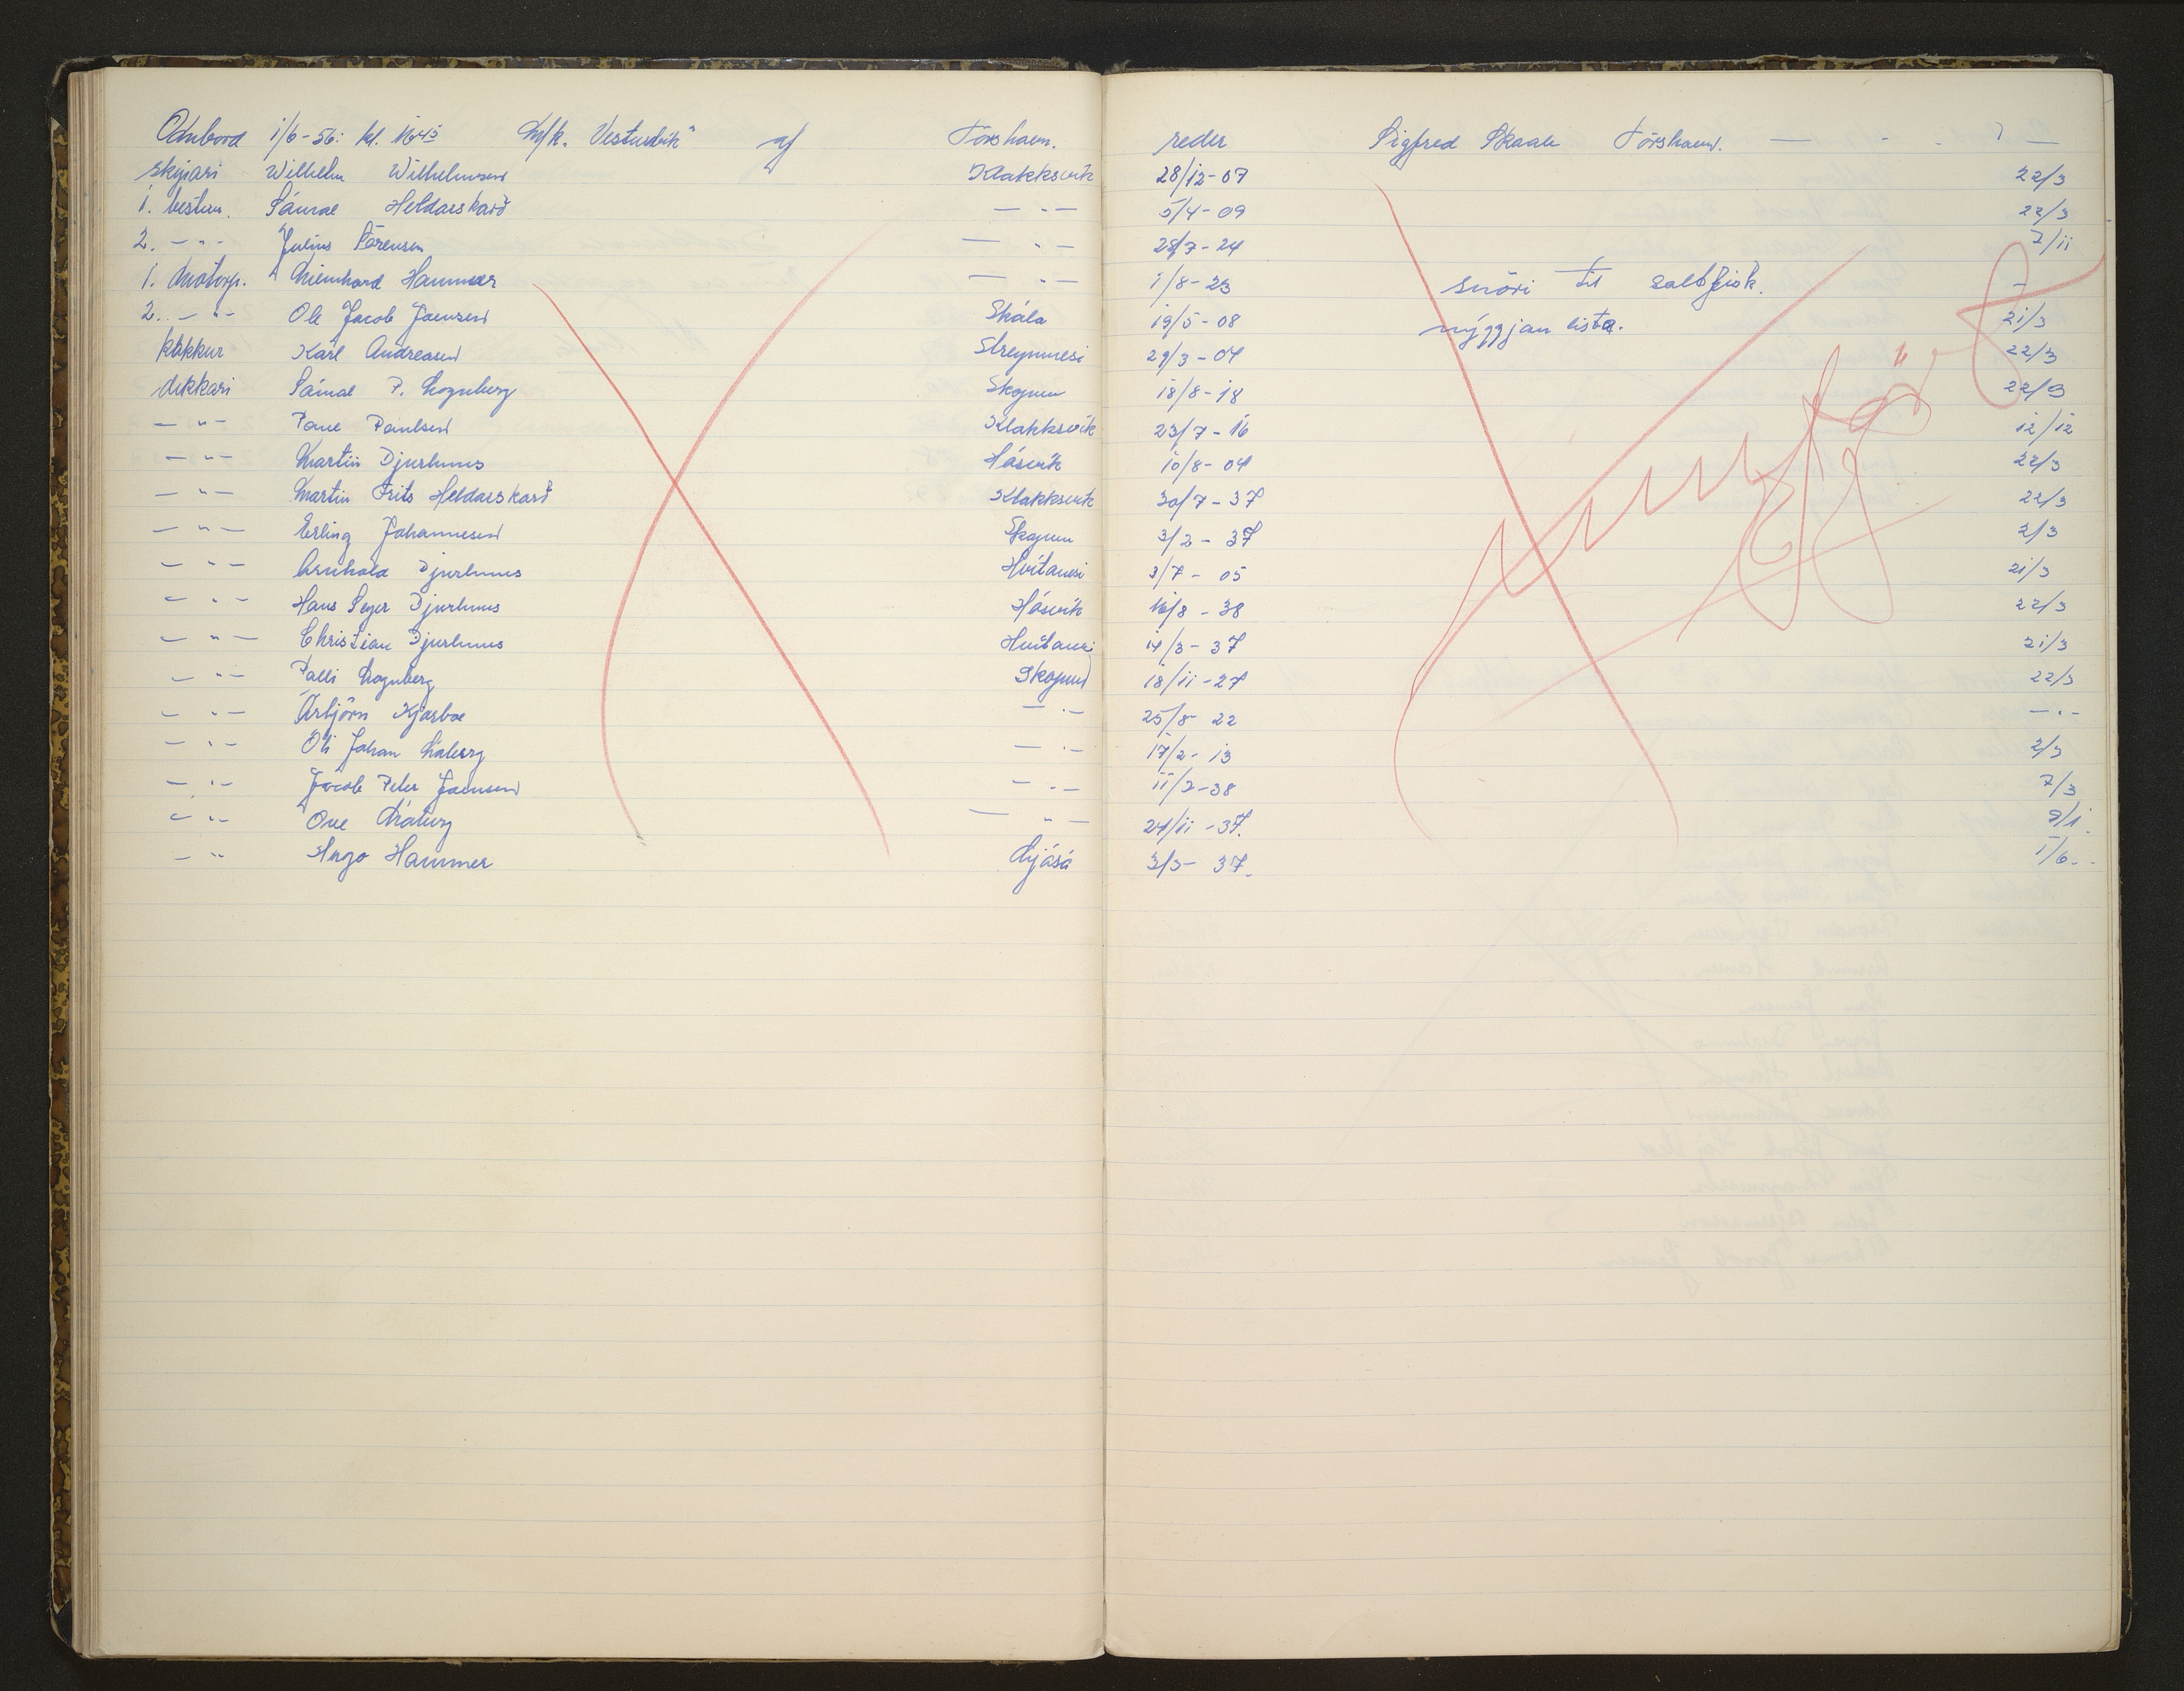 Ombord 1/6-56: kl. 1645 M/k. "Vesturvík" af Tórshavn. reder Sigfred Skaale Tórshavn.
skipari Wilhelm Wilhelmsen Klakksvík 28/12-07 22/3
1. bestm. Sámal Heldarskarð — " — 5/4-09 22/3
2. — " — Julius Sörensen — " — 28/7-24 7/11
1. Motorp. Meinhard Hammer — " — 1/8-23 snöri til saltfisk. —
2. — " — Ole Jacob Joensen Skála 19/5-08 nýggjan lista. 21/3
kokkur Karl Andreasen Streymnesi 29/3-04 22/3
dekkari Sámal P. Lognberg Skopun 18/8-18 22/3
— " — Poul Poulsen Klakksvík 23/7-16 12/12
— " — Martin Djurhuus Hósvík 10/8-04 22/3
— " — Martin Frits Heldarskarð Klakksvík 30/7-37 22/3
— " — Erling Johannesen Skopun 3/2-37 2/3
— " — Djurhuus Hvítanesi 3/7-05 21/3
— " — Hans Peter Djurhuus Hósvík 16/8-38 22/3
— " — Christian Djurhuus Hvítanesi 14/3-37 21/3
— " — Palli Lognberg Skopun 18/11-27 22/3
— " — Asbjörn Kjærbo — " — 25/8-22 — " —
— " — Óli Johan — " — 17/2-13 2/3
— " — Jacob Peter Joensen — " — 11/2-38 7/3
— " — Ove — " — 24/11-37. 9/1.
— " — Hergo Hammer Mjósá 3/3-37. 1/6.